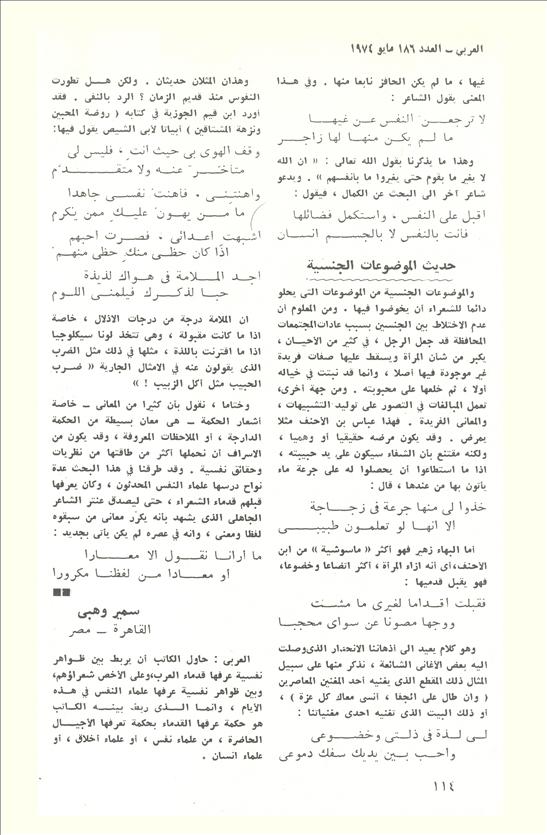 العربي – العدد ١٨٦ مايو ١٩٧٤
غيها ، ما لم يكن الحافز نابعا منها . وفي هذا
المعنى يقول الشاعر :
لا ترجعن النفس عن غيهــا
ما لم يكن منهــا لها زاجــر
وهذا ما يذكرنا بقول الله تعالى : « ان الله
لا يغير ما بقوم حتى يغيروا ما بأنفسهم » . ويدعو
شاعر آخر الى البحث عن الكمال ، فيقول :
اقبل على النفس ، واستكمل فضائلها
فأنت بالنفس لا بالجسم انسان
حديث الموضوعات الجنسية
والموضوعات الجنسية من الموضوعات التى يحلو
دائما للشعراء أن يخوضوا فيها . ومن المعلوم أن
عدم الاختلاط بين الجنسين بسبب عادات المجتمعات
المحافظة قد جعل الرجل ، في كثير من الأحيان ،
يكبر من شأن المرأة ويسقط عليها صفات فريدة
غير موجودة فيها أصلا ، وانما قد نبتت في خياله
أولا ، ثم خلعها على محبوبته . ومن جهة أخرى،
تعمل المبالغات في التصور على توليد التشبيهات ،
والمعاني الفريدة . فهذا عباس بن الأحنف مثلا
يمرض . وقد يكون مرضه حقيقيا أو وهميا ،
ولكنه مقتنع بأن الشفاء سيكون على يد حبيبته ،
اذا ما استطاعوا أن يحصلوا له على جرعة ماء
يأتون بها من عندها ، قال :
خذوا لى منها جرعة فى زجــاجة
الا انهــا لو تعلمــون طبيبــى
أما البهاء زهير فهو أكثر « ماسوشية » من ابن
الأحنف، أى أنه ازاء المرأة ، أكثر اتضاعا وخضوعا،
فهو يقبل قدميها :
فقبلت اقداما لغيرى ما مشت
ووجها مصونا عن سواى محجبا
وهو كلام يعيد الى أذهاننا الانحدار الذى وصلت
اليه بعض الأغانى الشائعة ، نذكر منها على سبيل
المثال ذلك المقطع الذى يغنيه أحد المغنين المعاصرين
( وان طال على الجفا ، أنسى معاك كل عزة ) ،
أو ذلك البيت الذى تغنيه احدى مغنياتنا :
لــى لذة فى ذلتــى وخضــوعى
واحب بــين يديك سفك دموعى
وهذان المثلان حديثان . ولكن هــل تطورت
النفوس منذ قديم الزمان ؟ الرد بالنفى . فقد
أورد ابن قيم الجوزية في كتابه ( روضة المحبين
ونزهة المشتاقين ) أبياتا لأبى الشيص يقول فيها:
وقف الهوى بى حيث انت ، فليس لى
متأخــر عنــه ولا متقــدم
واهنتنى ، فأهنت نفســى جاهدا
ما مــن يهون عليــك ممن يكرم
اشبهت اعدائى ، فصــرت احبهم
اذا كان حظــى منك حظى منهم
اجد المــلامة فى هواك لذيذة
حبا لذكــرك فيلمنى اللوم
ان الملامة درجة من درجات الاذلال ، خاصة
اذا ما كانت مقبولة ، وهى تتخذ لونا سيكلوجيا
اذا ما اقترنت باللذة ، مثلها في ذلك مثل الضرب
الذى يقولون عنه في الامثال الجارية « ضــرب
الحبيب مثل أكل الزبيب ! »
وختاما ، نقول بأن كثيرا من المعانى – خاصة
أشعار الحكمة – هى معان بسيطة من الحكمة
الدارجة ، أو الملاحظات المعروفة ، وقد يكون من
الاسراف أن نحملها أكثر من طاقتها من نظريات
وحقائق نفسية . وقد طرقنا في هذا البحث عدة
نواح درسها علماء النفس المحدثون ، وكان يعرفها
قبلهم قدماء الشعراء ، حتى ليصدق عنتر الشاعر
الجاهلى الذى يشهد بأنه يكرر معانى من سبقوه
لفظا ومعنى ، وانه في عصره لم يكن يأتى بجديد :
ما أرانا نقــول الا معــارا
او معــادا مــن لفظنــا مكرورا
سمير وهبى
القاهرة – مصر
العربي : حاول الكاتب أن يربط بين ظــواهر
نفسية عرفها قدماء العرب، وعلى الأخص شعراؤهم،
وبين ظواهر نفسية عرفها علماء النفس في هــذه
الأيام ، وانمــا الــذى ربط بينــه الكاتب
هو حكمة عرفها القدماء بحكمة تعرفها الأجيــال
الحاضرة ، من علماء نفس ، أو علماء أخلاق ، أو
علماء انسان .
١١٤